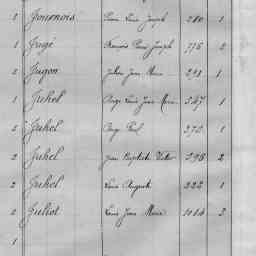 1 Gournois Pierre Louis Joseph 280 1
1 Jugé François Pierre Joseph 776 2
2 Jugon Julien Jean Marie 291 1
1 Juhel Ange Louis Jean Marie 547 1
2 Juhel Ange Paul 270 1
2 Juhel Jean Baptiste Victor 598 2
2 Juhel Louis Auguste 222 1
2 Juliot Louis Jean Marie 1014 2
1